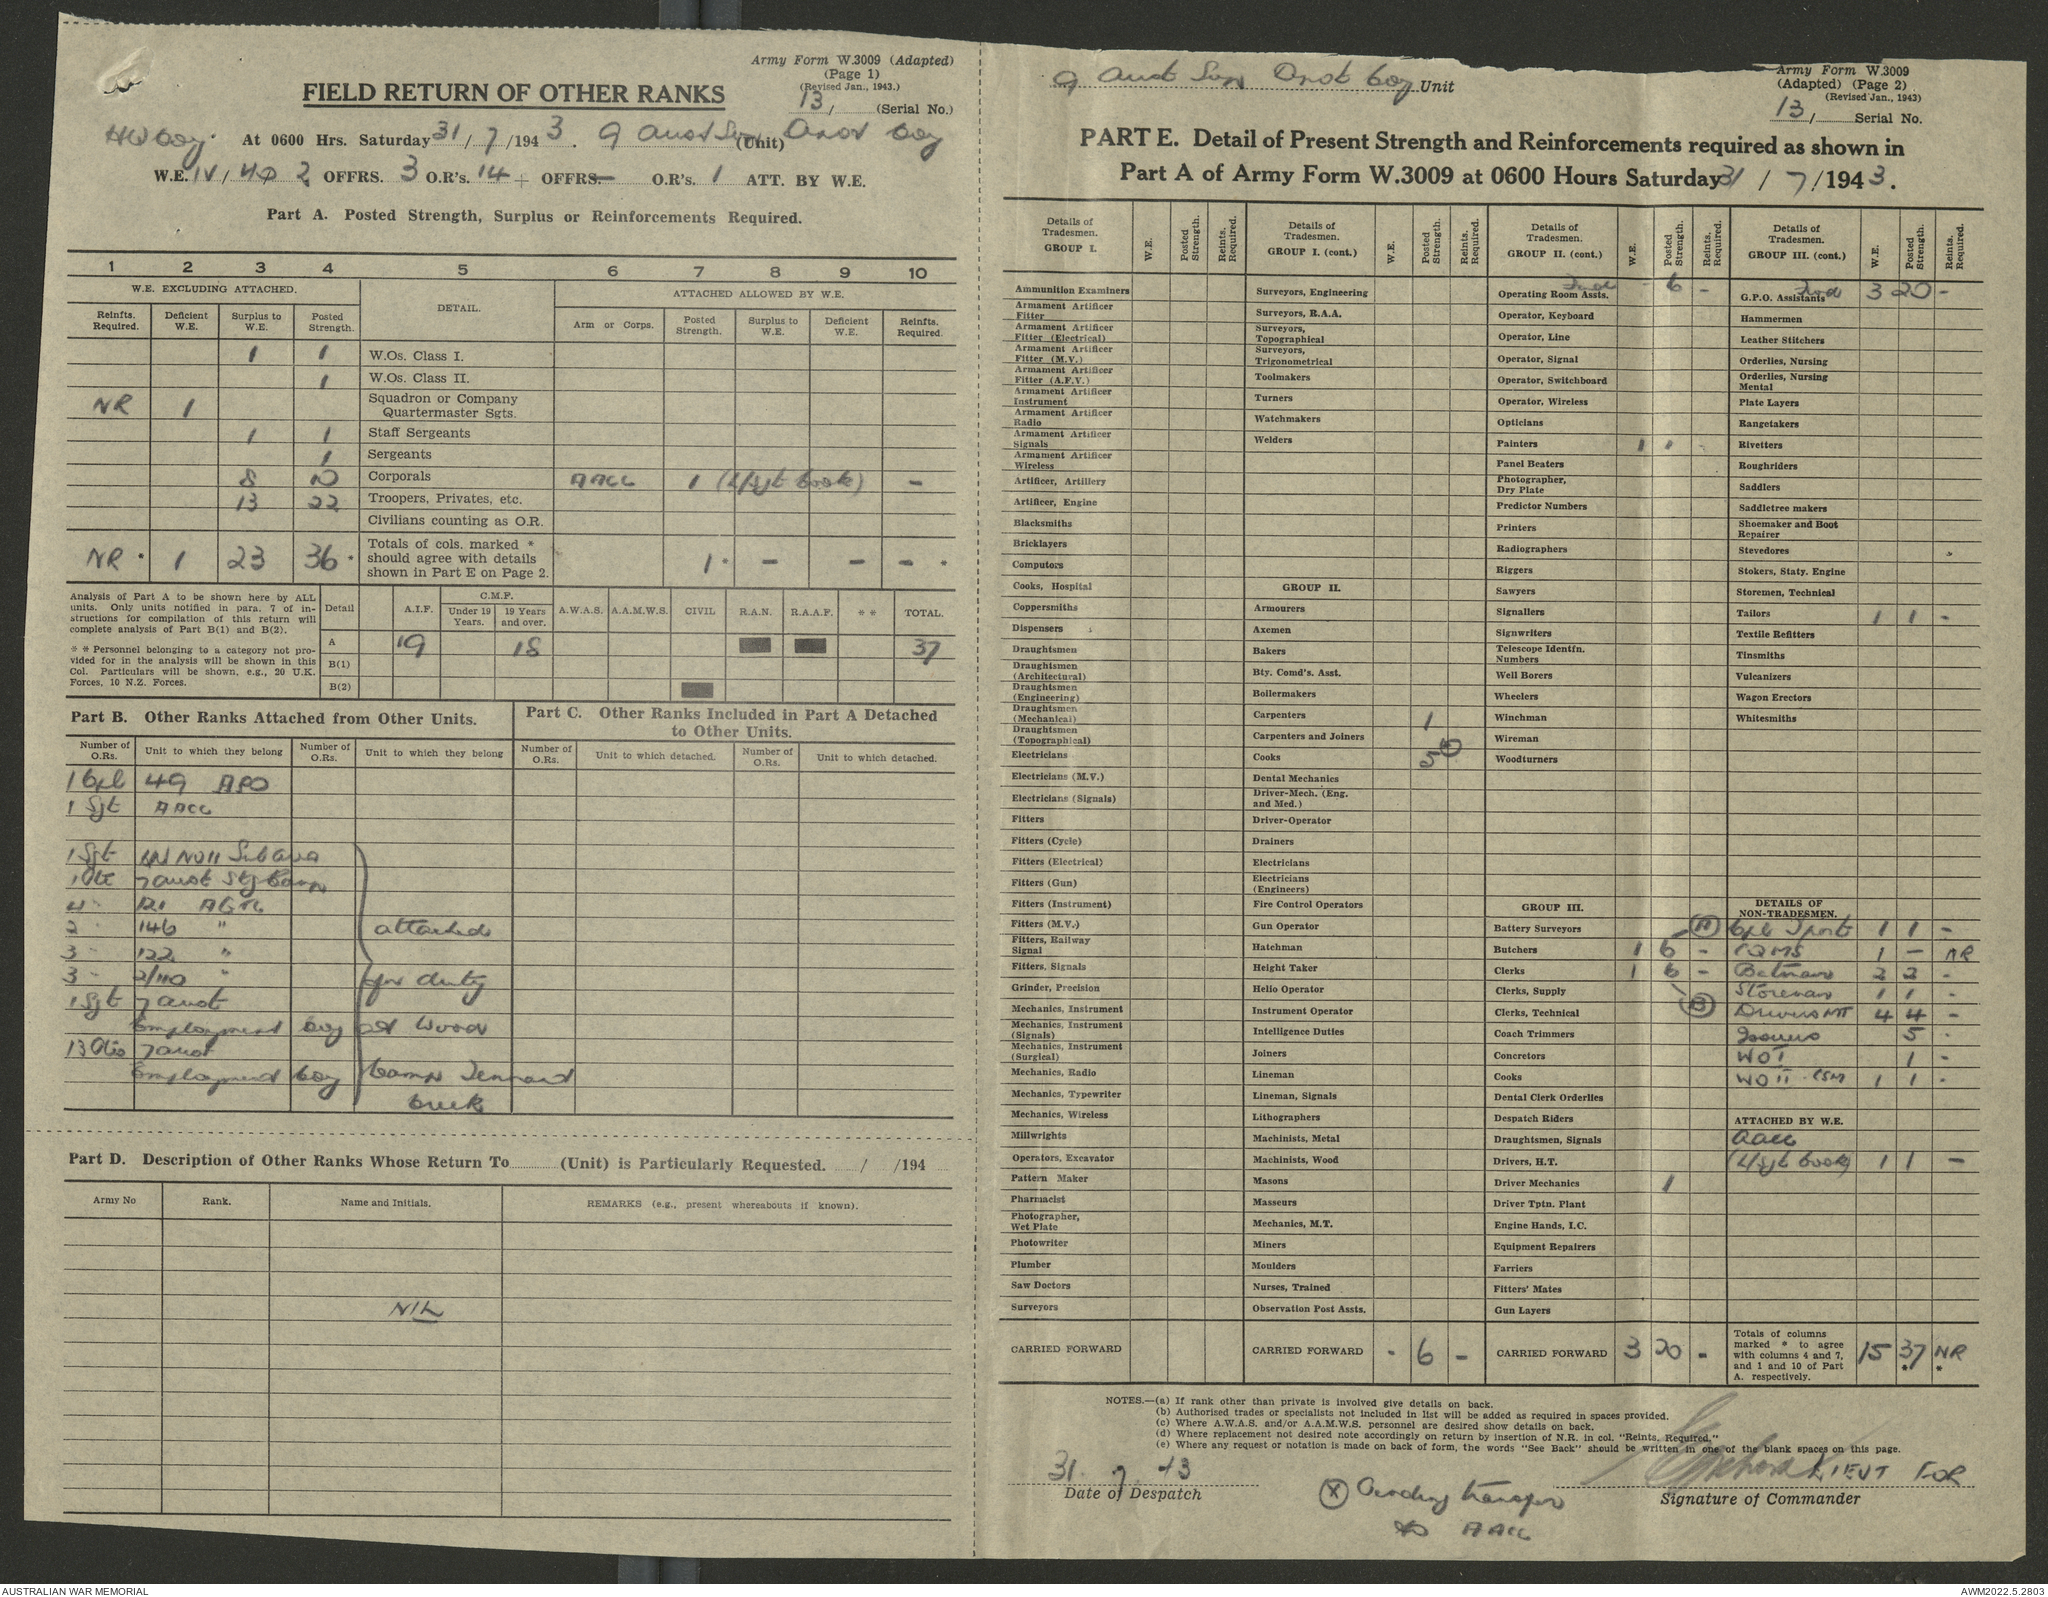 Army Form W.3009 (Adapted)
(Page 1)
(Revised Jan., 1943.)
13/ (Serial No.)
FIELD RETURN OF OTHER RANKS
HQ Coy. At 0600 Hrs. Saturday 31/7/1943. 9 Aust Sup (Unit) Depot Coy
W.E. IV/ 2 OFFRS. 3 O.R's. 14 + OFFRS. — O.R's. 1 ATT. BY W.E.
Part A. Posted Strength, Surplus or Reinforcements Required.
1 2 3 4 5 6 7 8 9 10
W.E. EXCLUDING ATTACHED. DETAIL. ATTACHED ALLOWED BY W.E.
Reinfts. Required. Deficient W.E. Surplus to W.E. Posted Strength. Arm or Corps. Posted Strength. Surplus to W.E. Deficient W.E. Reinfts. Required.
1 1 W.Os. Class I.
1 W.Os. Class II.
NR 1 Squadron or Company Quartermaster Sgts.
1 1 Staff Sergeants
1 Sergeants
8 10 Corporals AACC 1 (L/Sgt Cook) —
13 22 Troopers, Privates, etc.
Civilians counting as O.R.
NR * 1 23 36 * Totals of cols. marked * should agree with details shown in Part E on Page 2. 1 * — — — *
Analysis of Part A to be shown here by ALL units. Only units notified in para. 7 of instructions for compilation of this return will complete analysis of Part B(1) and B(2).
* * Personnel belonging to a category not provided for in the analysis will be shown in this Col. Particulars will be shown, e.g., 20 U.K. Forces, 10 N.Z. Forces.
Detail A.I.F. C.M.F. Under 19 Years. 19 Years and over. A.W.A.S. A.A.M.W.S. CIVIL R.A.N. R.A.A.F. * * TOTAL.
A 19 18 37
B(1)
B(2)
Part B. Other Ranks Attached from Other Units.
Number of O.Rs. Unit to which they belong Number of O.Rs. Unit to which they belong
1 Cpl 49 APO
1 Sgt AACC
1 Sgt No 11 Sub Area
1 Pte 7 Aust Stg Camp
4 " 121 AGTC
2 " 146 "
3 " 122 "
3 " 2/110 "
1 Sgt 7 Aust
Employment Coy
13 ORs 7 Aust
Employment Coy
attached
for duty
at Wood
Camp Tennant
Creek
Part C. Other Ranks Included in Part A Detached to Other Units.
Number of O.Rs. Unit to which detached. Number of O.Rs. Unit to which detached.
Part D. Description of Other Ranks Whose Return To (Unit) is Particularly Requested. / /194
Army No Rank. Name and Initials. REMARKS (e.g., present whereabouts if known).
NIL
9 Aust Sup Depot Coy Unit
Army Form W.3009
(Adapted) (Page 2)
(Revised Jan., 1943)
13/ Serial No.
PART E. Detail of Present Strength and Reinforcements required as shown in
Part A of Army Form W.3009 at 0600 Hours Saturday 31/7/1943.
Details of Tradesmen. GROUP I. W.E. Posted Strength. Reints. Required.
Ammunition Examiners
Armament Artificer Fitter
Armament Artificer Fitter (Electrical)
Armament Artificer Fitter (M.V.)
Armament Artificer Fitter (A.F.V.)
Armament Artificer Instrument
Armament Artificer Radio
Armament Artificer Signals
Armament Artificer Wireless
Artificer, Artillery
Artificer, Engine
Blacksmiths
Bricklayers
Computors
Cooks, Hospital
Coppersmiths
Dispensers
Draughtsmen
Draughtsmen (Architectural)
Draughtsmen (Engineering)
Draughtsmen (Mechanical)
Draughtsmen (Topographical)
Electricians
Electricians (M.V.)
Electricians (Signals)
Fitters
Fitters (Cycle)
Fitters (Electrical)
Fitters (Gun)
Fitters (Instrument)
Fitters (M.V.)
Fitters, Railway Signal
Fitters, Signals
Grinder, Precision
Mechanics, Instrument
Mechanics, Instrument (Signals)
Mechanics, Instrument (Surgical)
Mechanics, Radio
Mechanics, Typewriter
Mechanics, Wireless
Millwrights
Operators, Excavator
Pattern Maker
Pharmacist
Photographer, Wet Plate
Photowriter
Plumber
Saw Doctors
Surveyors
CARRIED FORWARD
Details of Tradesmen. GROUP I. (cont.) W.E. Posted Strength. Reints. Required.
Surveyors, Engineering
Surveyors, R.A.A.
Surveyors, Topographical
Surveyors, Trigonometrical
Toolmakers
Turners
Watchmakers
Welders
GROUP II.
Armourers
Axemen
Bakers
Bty. Comd's. Asst.
Boilermakers
Carpenters 1
Carpenters and Joiners
Cooks 5
Dental Mechanics
Driver-Mech. (Eng. and Med.)
Driver-Operator
Drainers
Electricians
Electricians (Engineers)
Fire Control Operators
Gun Operator
Hatchman
Height Taker
Helio Operator
Instrument Operator
Intelligence Duties
Joiners
Lineman
Lineman, Signals
Lithographers
Machinists, Metal
Machinists, Wood
Masons
Masseurs
Mechanics, M.T.
Miners
Moulders
Nurses, Trained
Observation Post Assts.
CARRIED FORWARD - 6 —
Details of Tradesmen. GROUP II. (cont.) W.E. Posted Strength. Reints. Required.
Fwd - 6 -
Operating Room Assts.
Operator, Keyboard
Operator, Line
Operator, Signal
Operator, Switchboard
Operator, Wireless
Opticians
Painters 1 1 -
Panel Beaters
Photographer, Dry Plate
Predictor Numbers
Printers
Radiographers
Riggers
Sawyers
Signallers
Signwriters
Telescope Identfn. Numbers
Well Borers
Wheelers
Winchman
Wireman
Woodturners
GROUP III.
Battery Surveyors (A)
Butchers 1 6 -
Clerks 1 6 -
Clerks, Supply
Clerks, Technical (B)
Coach Trimmers
Concretors
Cooks
Dental Clerk Orderlies
Despatch Riders
Draughtsmen, Signals
Drivers, H.T.
Driver Mechanics 1
Driver Tptn. Plant
Engine Hands, I.C.
Equipment Repairers
Farriers
Fitters' Mates
Gun Layers
CARRIED FORWARD 3 20 -
Details of Tradesmen. GROUP III. (cont.) W.E. Posted Strength. Reints. Required.
Fwd 3 20 -
G.P.O. Assistants
Hammermen
Leather Stitchers
Orderlies, Nursing
Orderlies, Nursing Mental
Plate Layers
Rangetakers
Rivetters
Roughriders
Saddlers
Saddletree makers
Shoemaker and Boot Repairer
Stevedores
Stokers, Staty. Engine
Storemen, Technical
Tailors 1 1 -
Textile Refitters
Tinsmiths
Vulcanizers
Wagon Erectors
Whitesmiths
DETAILS OF NON-TRADESMEN.
Cpl Tport 1 1 -
CQMS 1 — NR
Batmen 2 2 -
Storeman 1 1 -
Drivers MT 4 4 -
Issuers 5 -
WOI 1 -
WOII CSM 1 1 -
ATTACHED BY W.E.
AACC
(L/Sgt Cook) 1 1 —
Totals of columns marked * to agree with columns 4 and 7, and 1 and 10 of Part A. respectively. 15 37 * NR *
NOTES.—(a) If rank other than private is involved give details on back.
(b) Authorised trades or specialists not included in list will be added as required in spaces provided.
(c) Where A.W.A.S. and/or A.A.M.W.S. personnel are desired show details on back.
(d) Where replacement not desired note accordingly on return by insertion of N.R. in col. "Reints. Required."
(e) Where any request or notation is made on back of form, the words "See Back" should be written in one of the blank spaces on this page.
31. 7. 43
Date of Despatch
(X) Pending transfer
to AACC
LIEUT FOR
Signature of Commander
AUSTRALIAN WAR MEMORIAL
AWM2022.5.2803